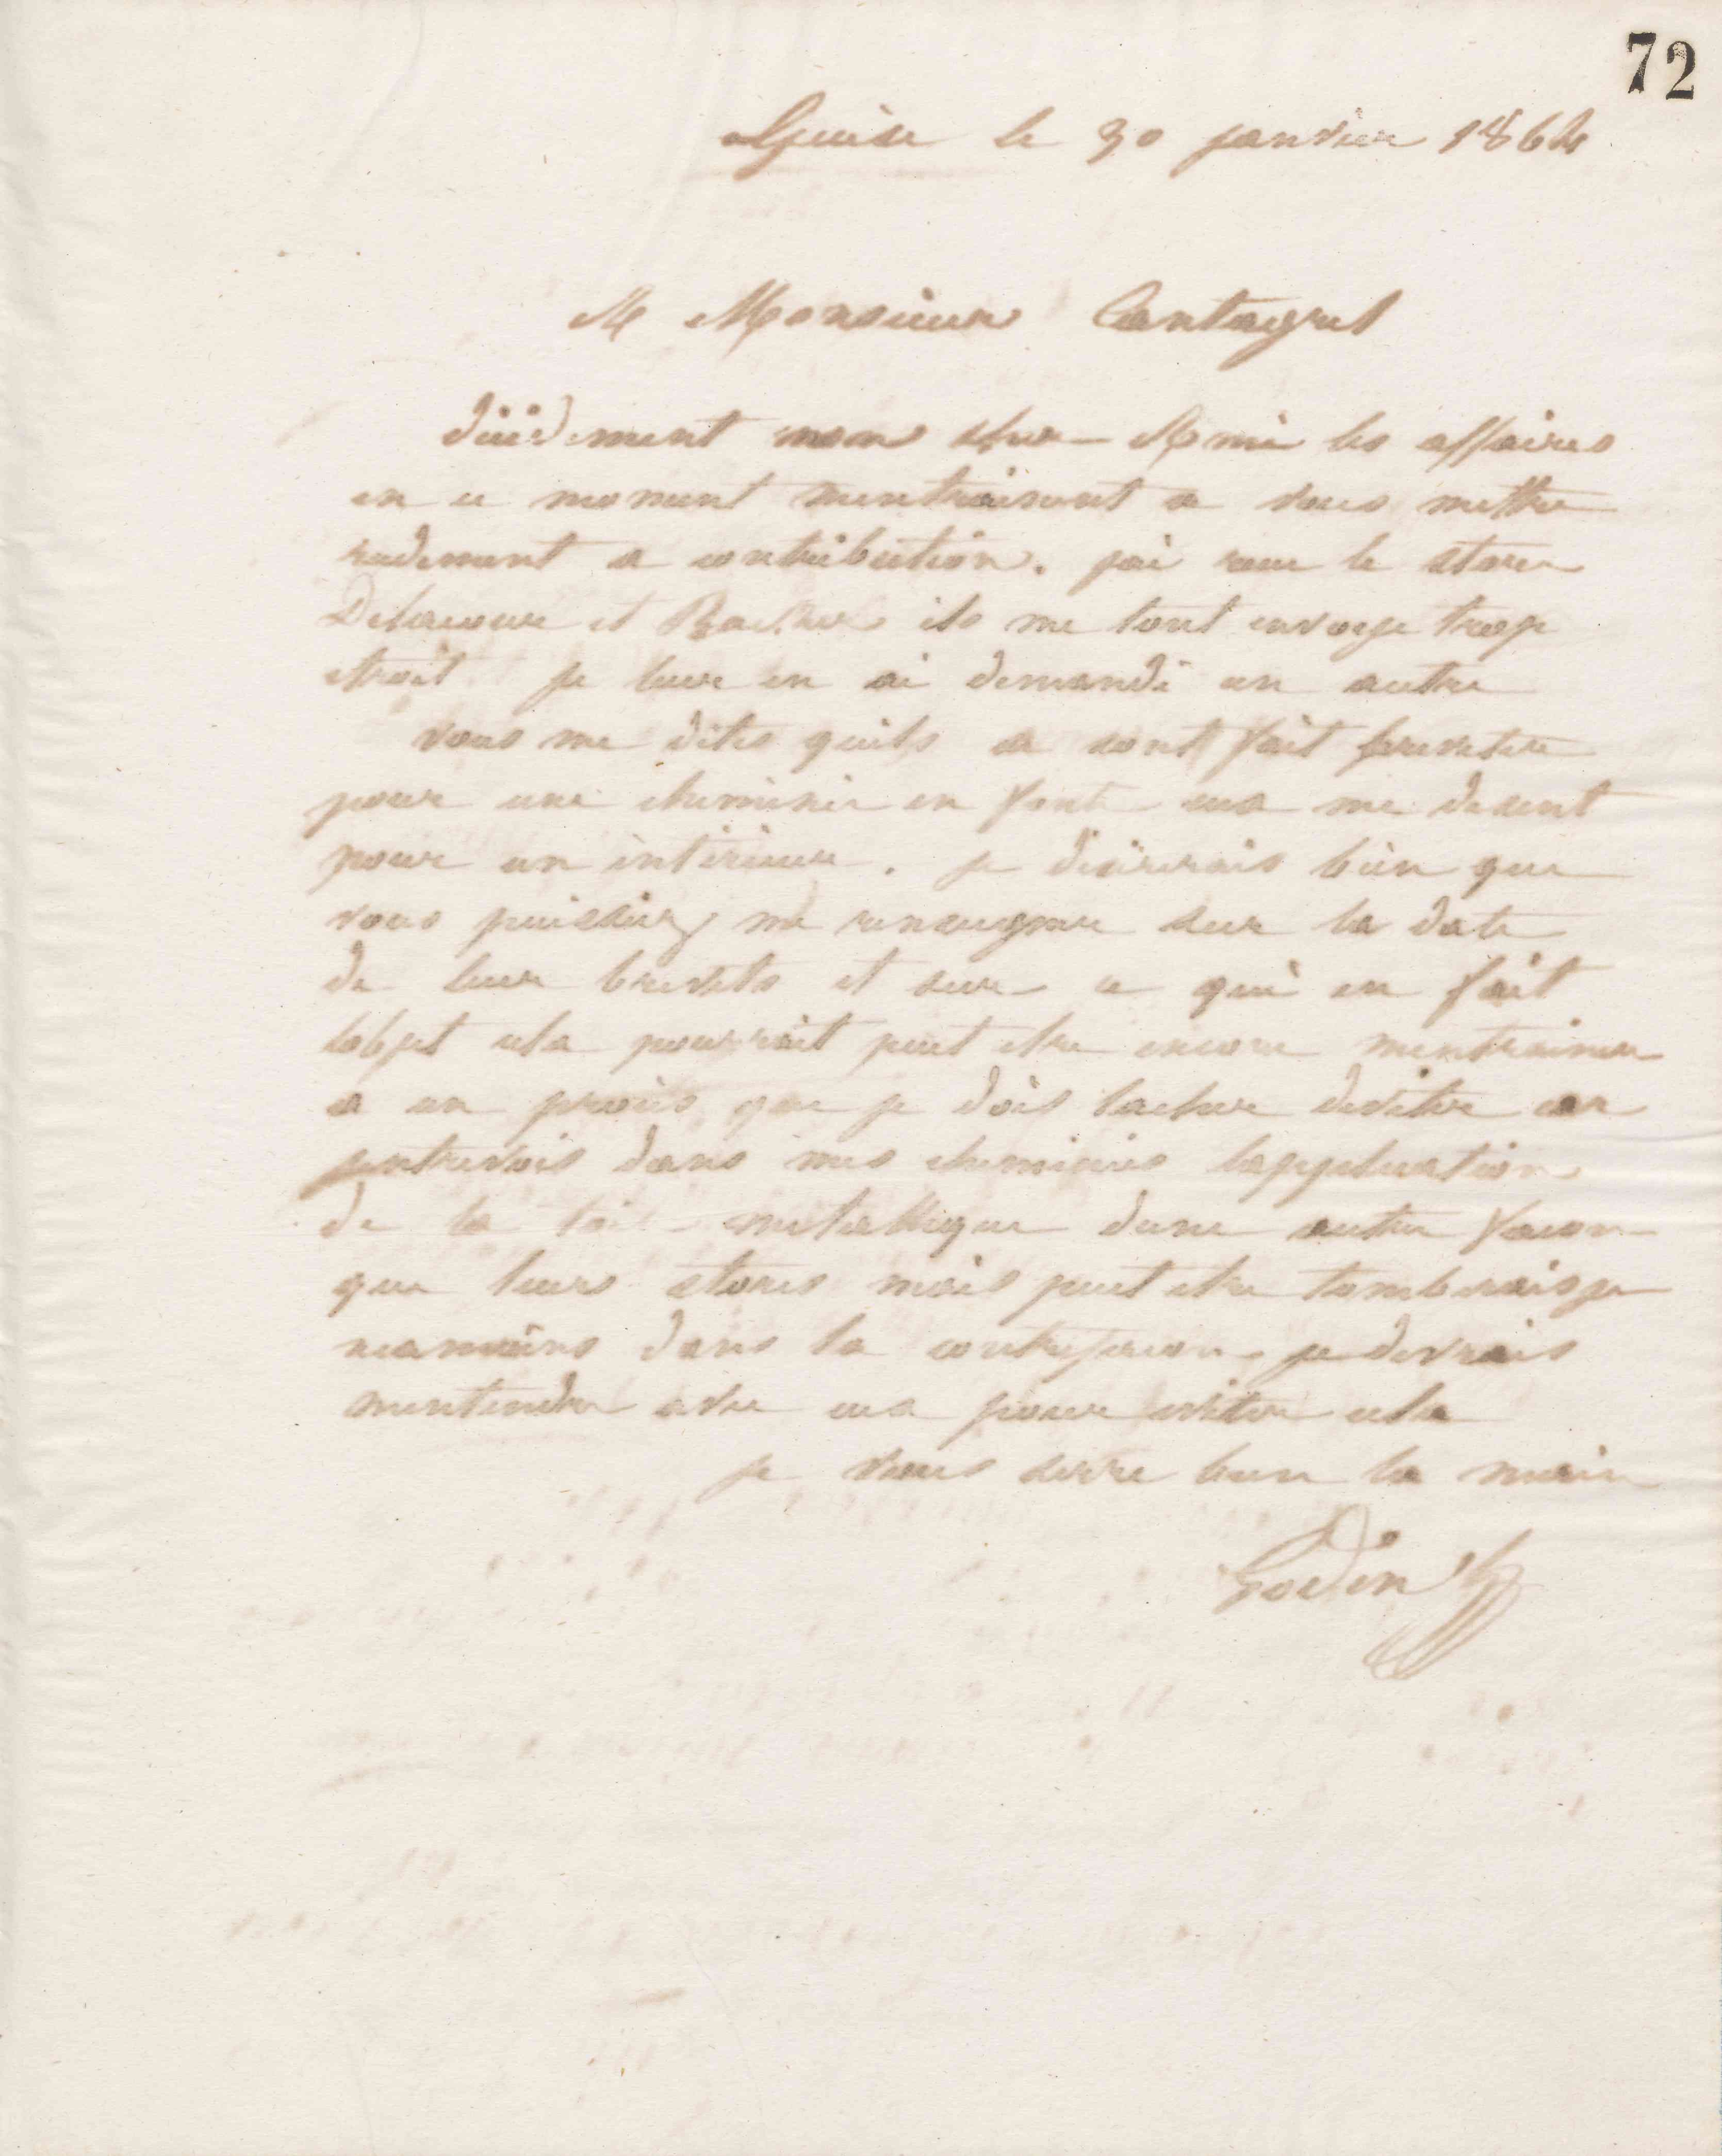 72
Guise le 30 janvier 1864
A Monsieur Cantagrel
décidement mon cher Ami les affaires
en ce moment mentrainent a vous mettre
rudement a contribution. jai recu le store
Delacour et ils me lont envoye trop
etroit je leur en ai demandé un autre
vous me dites quils se sont fait breveter
pour une cheminée en fonte eux me disent
pour un intérieur. je désirerais bien que
vous puissiez me renseigner sur la date
de leur brevets et sur ce qui en fait
lobjet cela pourrait peut etre encore mentrainer
a un procès que je dois tacher deviter car
jentrevois dans mes cheminées lapplication
de la toile metallique dune autre facon
que leurs stores mais peut etre tomberais je
neanmoins dans la contrefacon je devrais
mentendre avec eux pour eviter cela
je vous serre bien la main
Godin